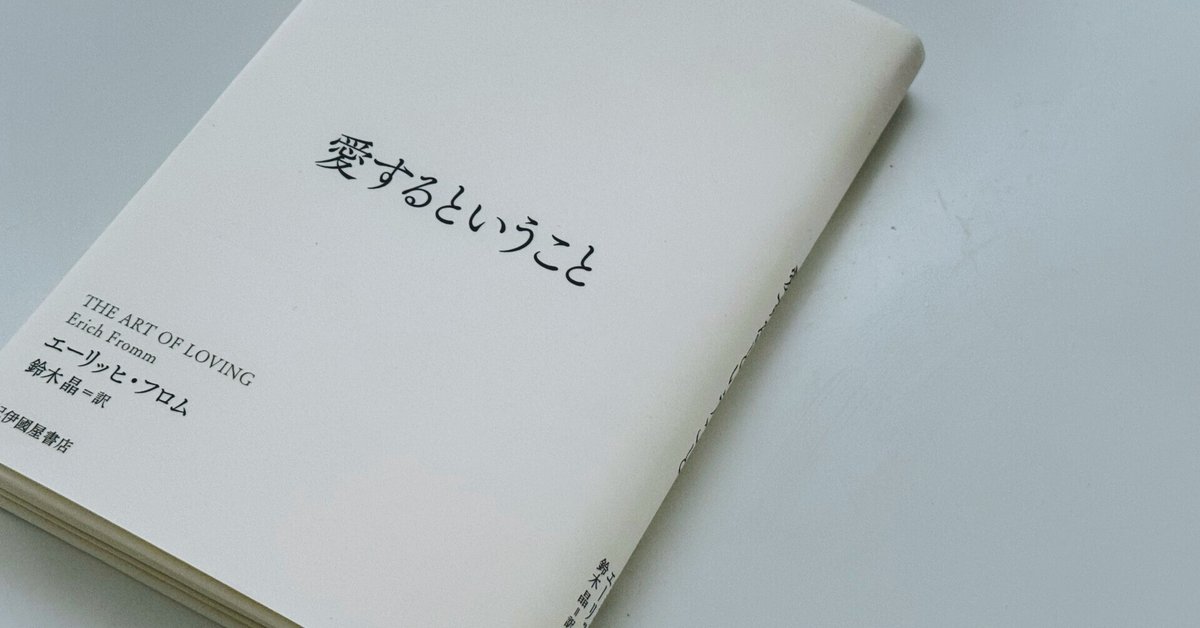 愛するということ
THE ART OF LOVING
Erich Fromm
エーリッヒ・フロム
鈴木晶=訳
伊國屋書店
鈴木晶=訳